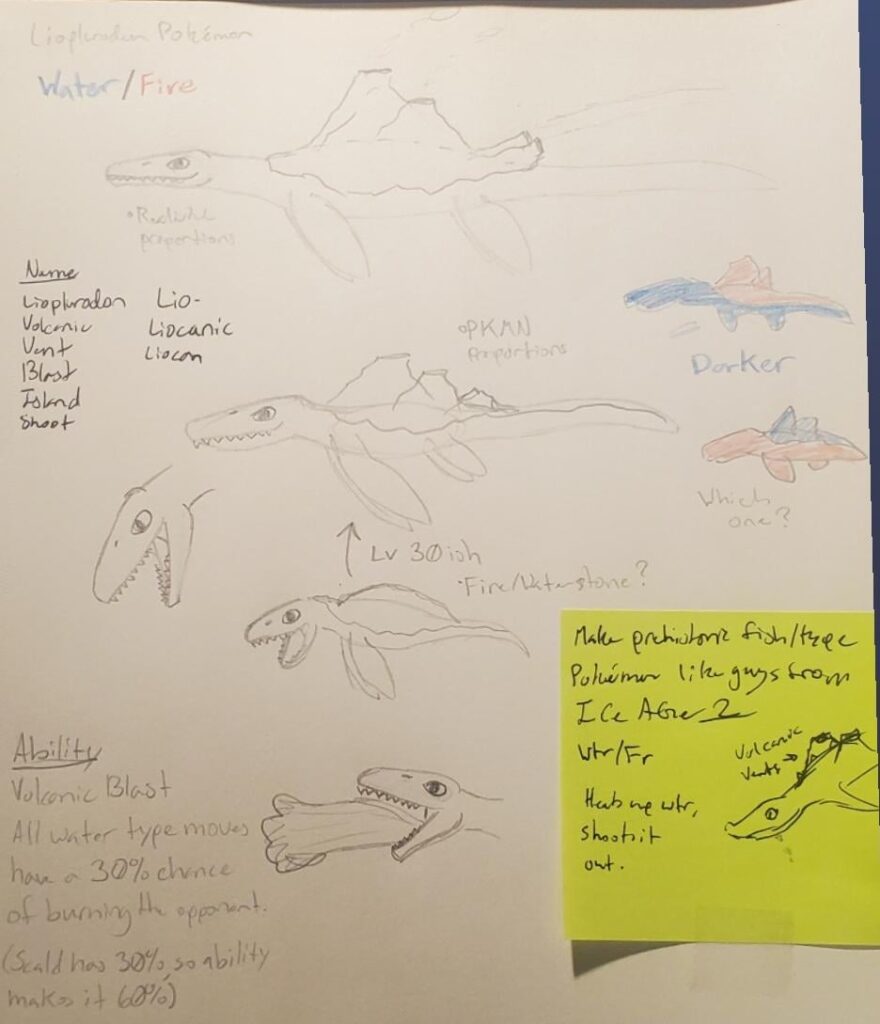 Liopluradon Pokémon
Water/Fire
•Realistic
proportions
Name
Liopluradon
Volcanic
Vent
Blast
Island
Shoot
Lio-
Liocanic
Liocan
•PKMN
Proportions
Darker
Which
one?
Lv 30ish
•Fire/Waterstone?
Ability
Volcanic Blast
All water type moves
have a 30% chance
of burning the opponent.
(Scald has 30%, so ability
makes it 60%)
Make prehistoric fish/type
Pokémon like guys from
ICE AGE 2
Wtr/Fr
Volcanic
Vents
Heats up wtr,
shoots it
out.